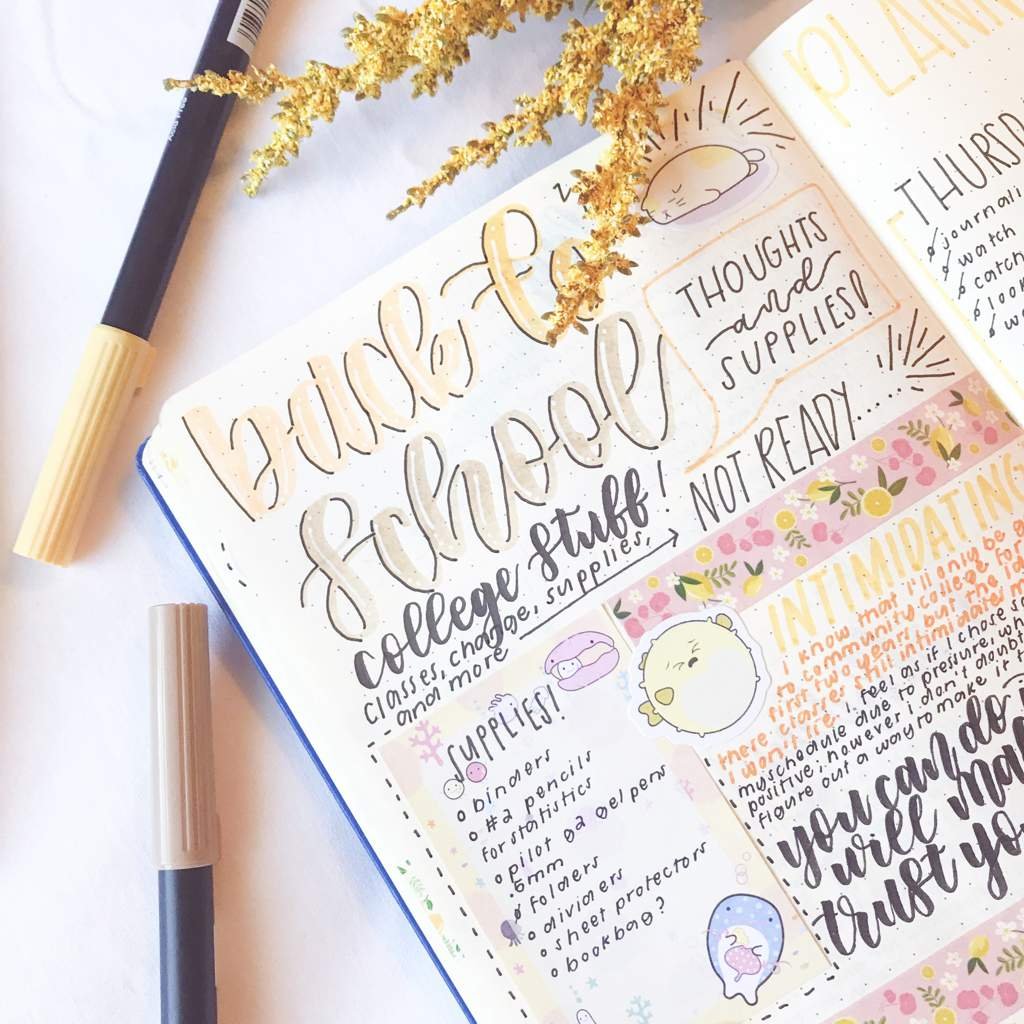 back to
school
college stuff!
classes, change, supplies,
and more
THOUGHTS
and
SUPPLIES!
NOT READY.....
SUPPLIES!
binders
#2 pencils
for statistics
pilot G2 gel pens
5mm
folders
dividers
sheet protectors
bookbag?
INTIMIDATING
I know that I'll only be g
to community college for
first two years but the id
there classes still intimidate m
I won't lie. I feel as if I chose
my schedule due to pressure, wh
positive; however I don't doubt
figure out a way to make it
you can do
will ma
trust yo
PLAN
THURSD
journali
watch
catch
look